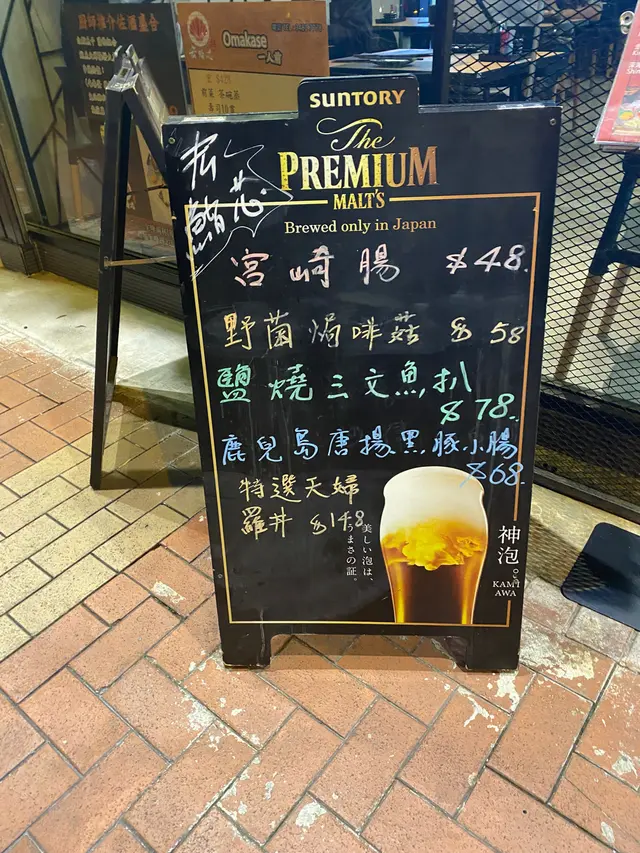 SUNTORY
The
PREMIUM
MALT'S
Brewed only in Japan
宮崎腸 $48.
野菌焗啡菇 $58
鹽燒三文魚扒
$78.
鹿兒島唐揚黑豚小腸
$68.
特選天婦
羅丼 $148
美しい泡は、
うまさの証。
神泡。
KAMI
AWA
Omakase
一人食